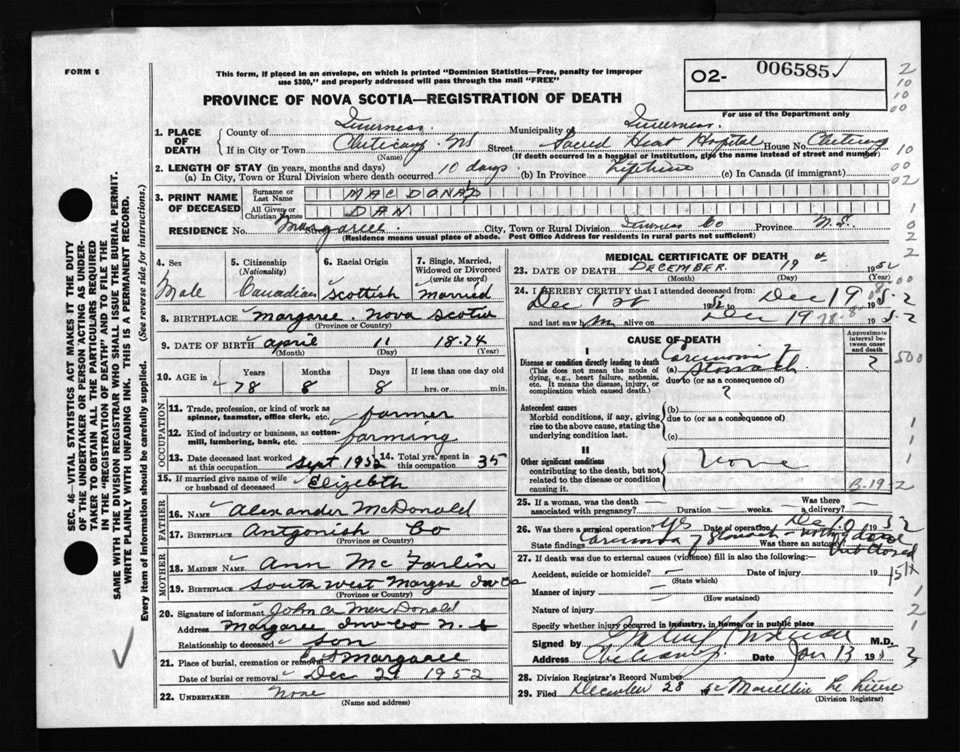 FORM 6
This form, if placed in an envelope, on which is printed "Dominion Statistics—Free, penalty for improper
use $300," and properly addressed will pass through the mail "FREE"
O2- 006585
For use of the Department only
PROVINCE OF NOVA SCOTIA—REGISTRATION OF DEATH
1. PLACE OF DEATH
County of Inverness. Municipality of Inverness.
If in City or Town Cheticamp NS Street Sacred Heart Hospital House No.
(Name) (If death occurred in a hospital or institution, give the name instead of street and number)
2. LENGTH OF STAY (in years, months and days)
(a) In City, Town or Rural Division where death occurred 10 days (b) In Province Lifetime (c) In Canada (if immigrant)
3. PRINT NAME OF DECEASED
Surname or Last Name MAC DONALD
All Given or Christian Names DAN
RESIDENCE No. Street Margaree. City, Town or Rural Division Inverness Co Province N.S.
(Residence means usual place of abode. Post Office Address for residents in rural parts not sufficient)
4. Sex Male
5. Citizenship (Nationality) Canadian
6. Racial Origin Scottish
7. Single, Married, Widowed or Divorced (write the word) Married
8. BIRTHPLACE Margaree. Nova Scotia
(Province or Country)
9. DATE OF BIRTH April 11 1874
(Month) (Day) (Year)
10. AGE in Years Months Days If less than one day old
78 8 8 hrs. or min.
OCCUPATION
11. Trade, profession, or kind of work as spinner, teamster, office clerk, etc. farmer
12. Kind of industry or business, as cotton-mill, lumbering, bank, etc. farming
13. Date deceased last worked at this occupation Sept 1952 14. Total yrs. spent in this occupation 35
15. If married give name of wife or husband of deceased Elizebth
FATHER
16. NAME Alexander McDonald
17. BIRTHPLACE Antgonish Co
(Province or Country)
MOTHER
18. MAIDEN NAME Ann Mc Farlin
19. BIRTHPLACE South West Margree Inv Co
(Province or Country)
20. Signature of informant John A MacDonald
Address Margaree Inv Co N.S
Relationship to deceased son
21. Place of burial, cremation or removal Margaree
Date of burial or removal Dec 21 1952
22. UNDERTAKER None
(Name and address)
MEDICAL CERTIFICATE OF DEATH
23. DATE OF DEATH DECEMBER 19 1952
(Month) (Day) (Year)
24. I HEREBY CERTIFY that I attended deceased from:
Dec 1952 to Dec 19 1952
and last saw him alive on Dec 19 1952
CAUSE OF DEATH
Approximate interval between onset and death
I
Disease or condition directly leading to death
(This does not mean the mode of dying, e.g., heart failure, asthenia, etc. It means the disease, injury, or complication which caused death.)
(a) Carcinoma ? Stomach ?
due to (or as a consequence of)
?
Antecedent causes
Morbid conditions, if any, giving rise to the above cause, stating the underlying condition last.
(b)
due to (or as a consequence of)
(c)
II
Other significant conditions
contributing to the death, but not related to the disease or condition causing it.
None
25. If a woman, was the death associated with pregnancy? Duration weeks. Was there a delivery?
26. Was there a surgical operation? Yes Date of operation Dec 1952
State findings Carcinoma of Stomach Was there an autopsy?
27. If death was due to external causes (violence) fill in also the following:
Accident, suicide or homicide? Date of injury 19
(State which)
Manner of injury
(How sustained)
Nature of injury
Specify whether injury occurred in industry, in home, or in public place
Signed by M.D.
Address Cheticamp Date Jan 13 1953
28. Division Registrar's Record Number
29. Filed December 28
(Division Registrar)
SEC. 46—VITAL STATISTICS ACT MAKES IT THE DUTY
OF THE UNDERTAKER OR PERSON ACTING AS UNDERTAKER
TO OBTAIN ALL THE PARTICULARS REQUIRED
IN THE "REGISTRATION OF DEATH" AND TO FILE THE
SAME WITH THE DIVISION REGISTRAR WHO SHALL ISSUE THE BURIAL PERMIT.
WRITE PLAINLY WITH UNFADING INK. THIS IS A PERMANENT RECORD.
Every item of Information should be carefully supplied. (See reverse side for instructions.)